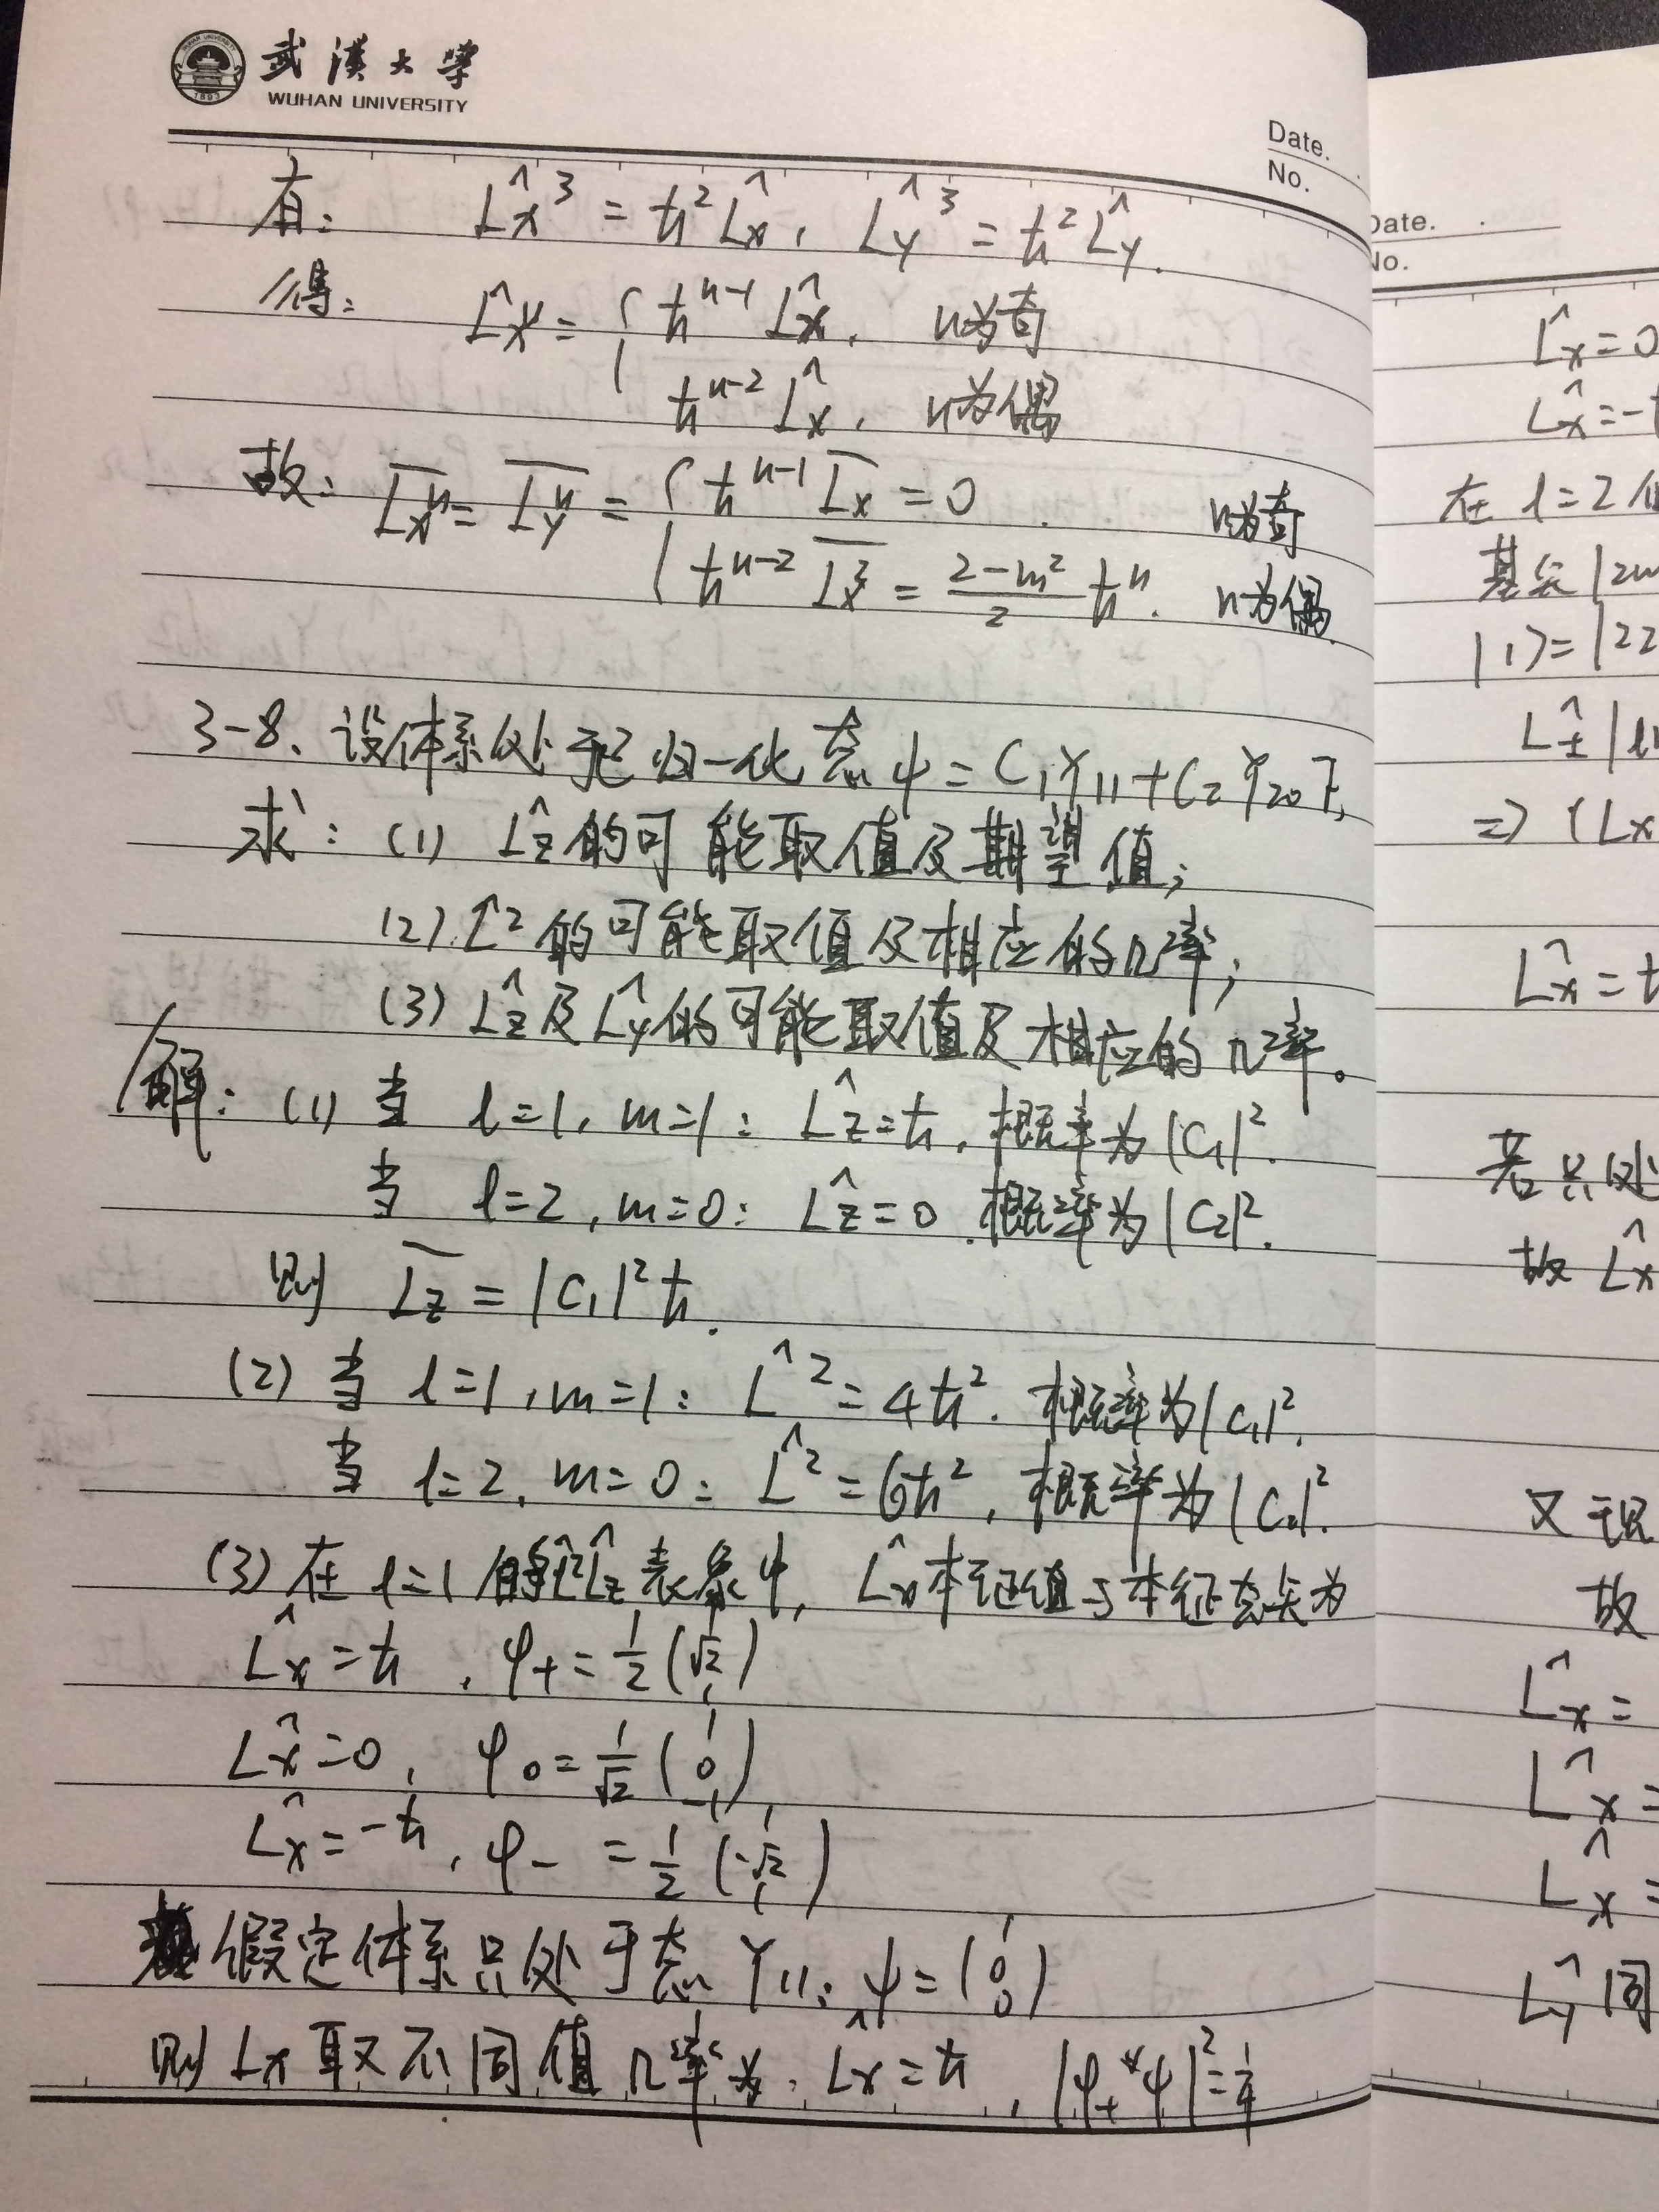 武漢大學
WUHAN UNIVERSITY
1893
Date.
No.
有: L̂x³ = ħ²L̂x, L̂y³ = ħ²L̂y.
得: L̂xⁿ = { ħⁿ⁻¹ L̂x, n为奇
ħⁿ⁻² L̂x, n为偶
故: L̅x̅ⁿ = L̅y̅ⁿ = { ħⁿ⁻¹ L̅x̅ = 0 n为奇
ħⁿ⁻² L̅x̅² = (2-m²)/2 ħⁿ. n为偶
3-8、设体系处于已归一化态 ψ = C₁Y₁₁ + C₂Y₂₀下,
求: (1) L̂z的可能取值及期望值;
(2) L̂²的可能取值及相应的几率;
(3) L̂z及L̂y的可能取值及相应的几率。
解: (1) 当 l=1, m=1: L̂z=ħ, 概率为|C₁|².
当 l=2, m=0: L̂z=0. 概率为|C₂|².
则 L̅z̅ = |C₁|²ħ.
(2) 当 l=1, m=1: L̂² = 4ħ². 概率为|C₁|².
当 l=2, m=0: L̂² = 6ħ², 概率为|C₂|².
(3) 在 l=1的L̂²L̂z表象中, L̂x本征值与本征态矢为
L̂x = ħ, φ₊ = 1/2 (1 √2 1)
L̂x = 0, φ₀ = 1/√2 (1 0 -1),
L̂x = -ħ, φ₋ = 1/2 (1 -√2 1)
假定体系只处于态 Y₁₁: ψ = (1 0 0)
则 Lx 取不同值几率为: L̂x = ħ, |φ₊*ψ|² = 1/4
Date.
No.
L̂x = 0
L̂x = -
在 l=2
基矢 |2m
|1⟩ = |22
L̂± |l
⇒ (Lx
L̂x = ħ
若只处
故 L̂x
又
故
L̂x =
L̂x =
L̂x =
L̂y 同